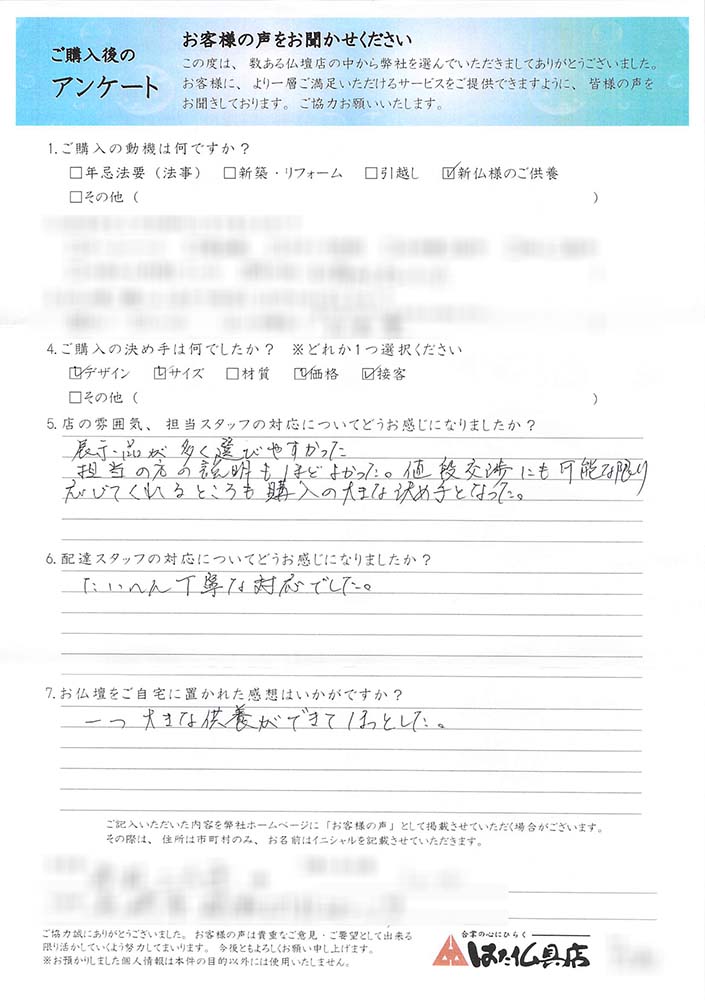 ご購入後の
アンケート
お客様の声をお聞かせください
この度は、数ある仏壇店の中から弊社を選んでいただきましてありがとうございました。
お客様に、より一層ご満足いただけるサービスをご提供できますように、皆様の声を
お聞きしております。ご協力お願いいたします。
1.ご購入の動機は何ですか？
□年忌法要（法事） □新築・リフォーム □引越し ☑新仏様のご供養
□その他（ ）
4.ご購入の決め手は何でしたか？ ※どれか1つ選択ください
☑デザイン ☑サイズ □材質 ☑価格 ☑接客
□その他（ ）
5.店の雰囲気、担当スタッフの対応についてどうお感じになりましたか？
展示品が多く選びやすかった
担当の方の説明もほどよかった。値段交渉にも可能な限り
応じてくれるところも購入の大きな決め手となった。
6.配達スタッフの対応についてどうお感じになりましたか？
たいへん丁寧な対応でした。
7.お仏壇をご自宅に置かれた感想はいかがですか？
一つ大きな供養ができてほっとした。
ご記入いただいた内容を弊社ホームページに「お客様の声」として掲載させていただく場合がございます。
その際は、住所は市町村のみ、お名前はイニシャルを記載させていただきます。
ご協力誠にありがとうございました。お客様の声は貴重なご意見・ご要望として出来る
限り活かしていくよう努力してまいります。今後ともよろしくお願い申し上げます。
※お預かりしました個人情報は本件の目的以外には使用いたしません。
合掌の心にひらく
はた仏具店